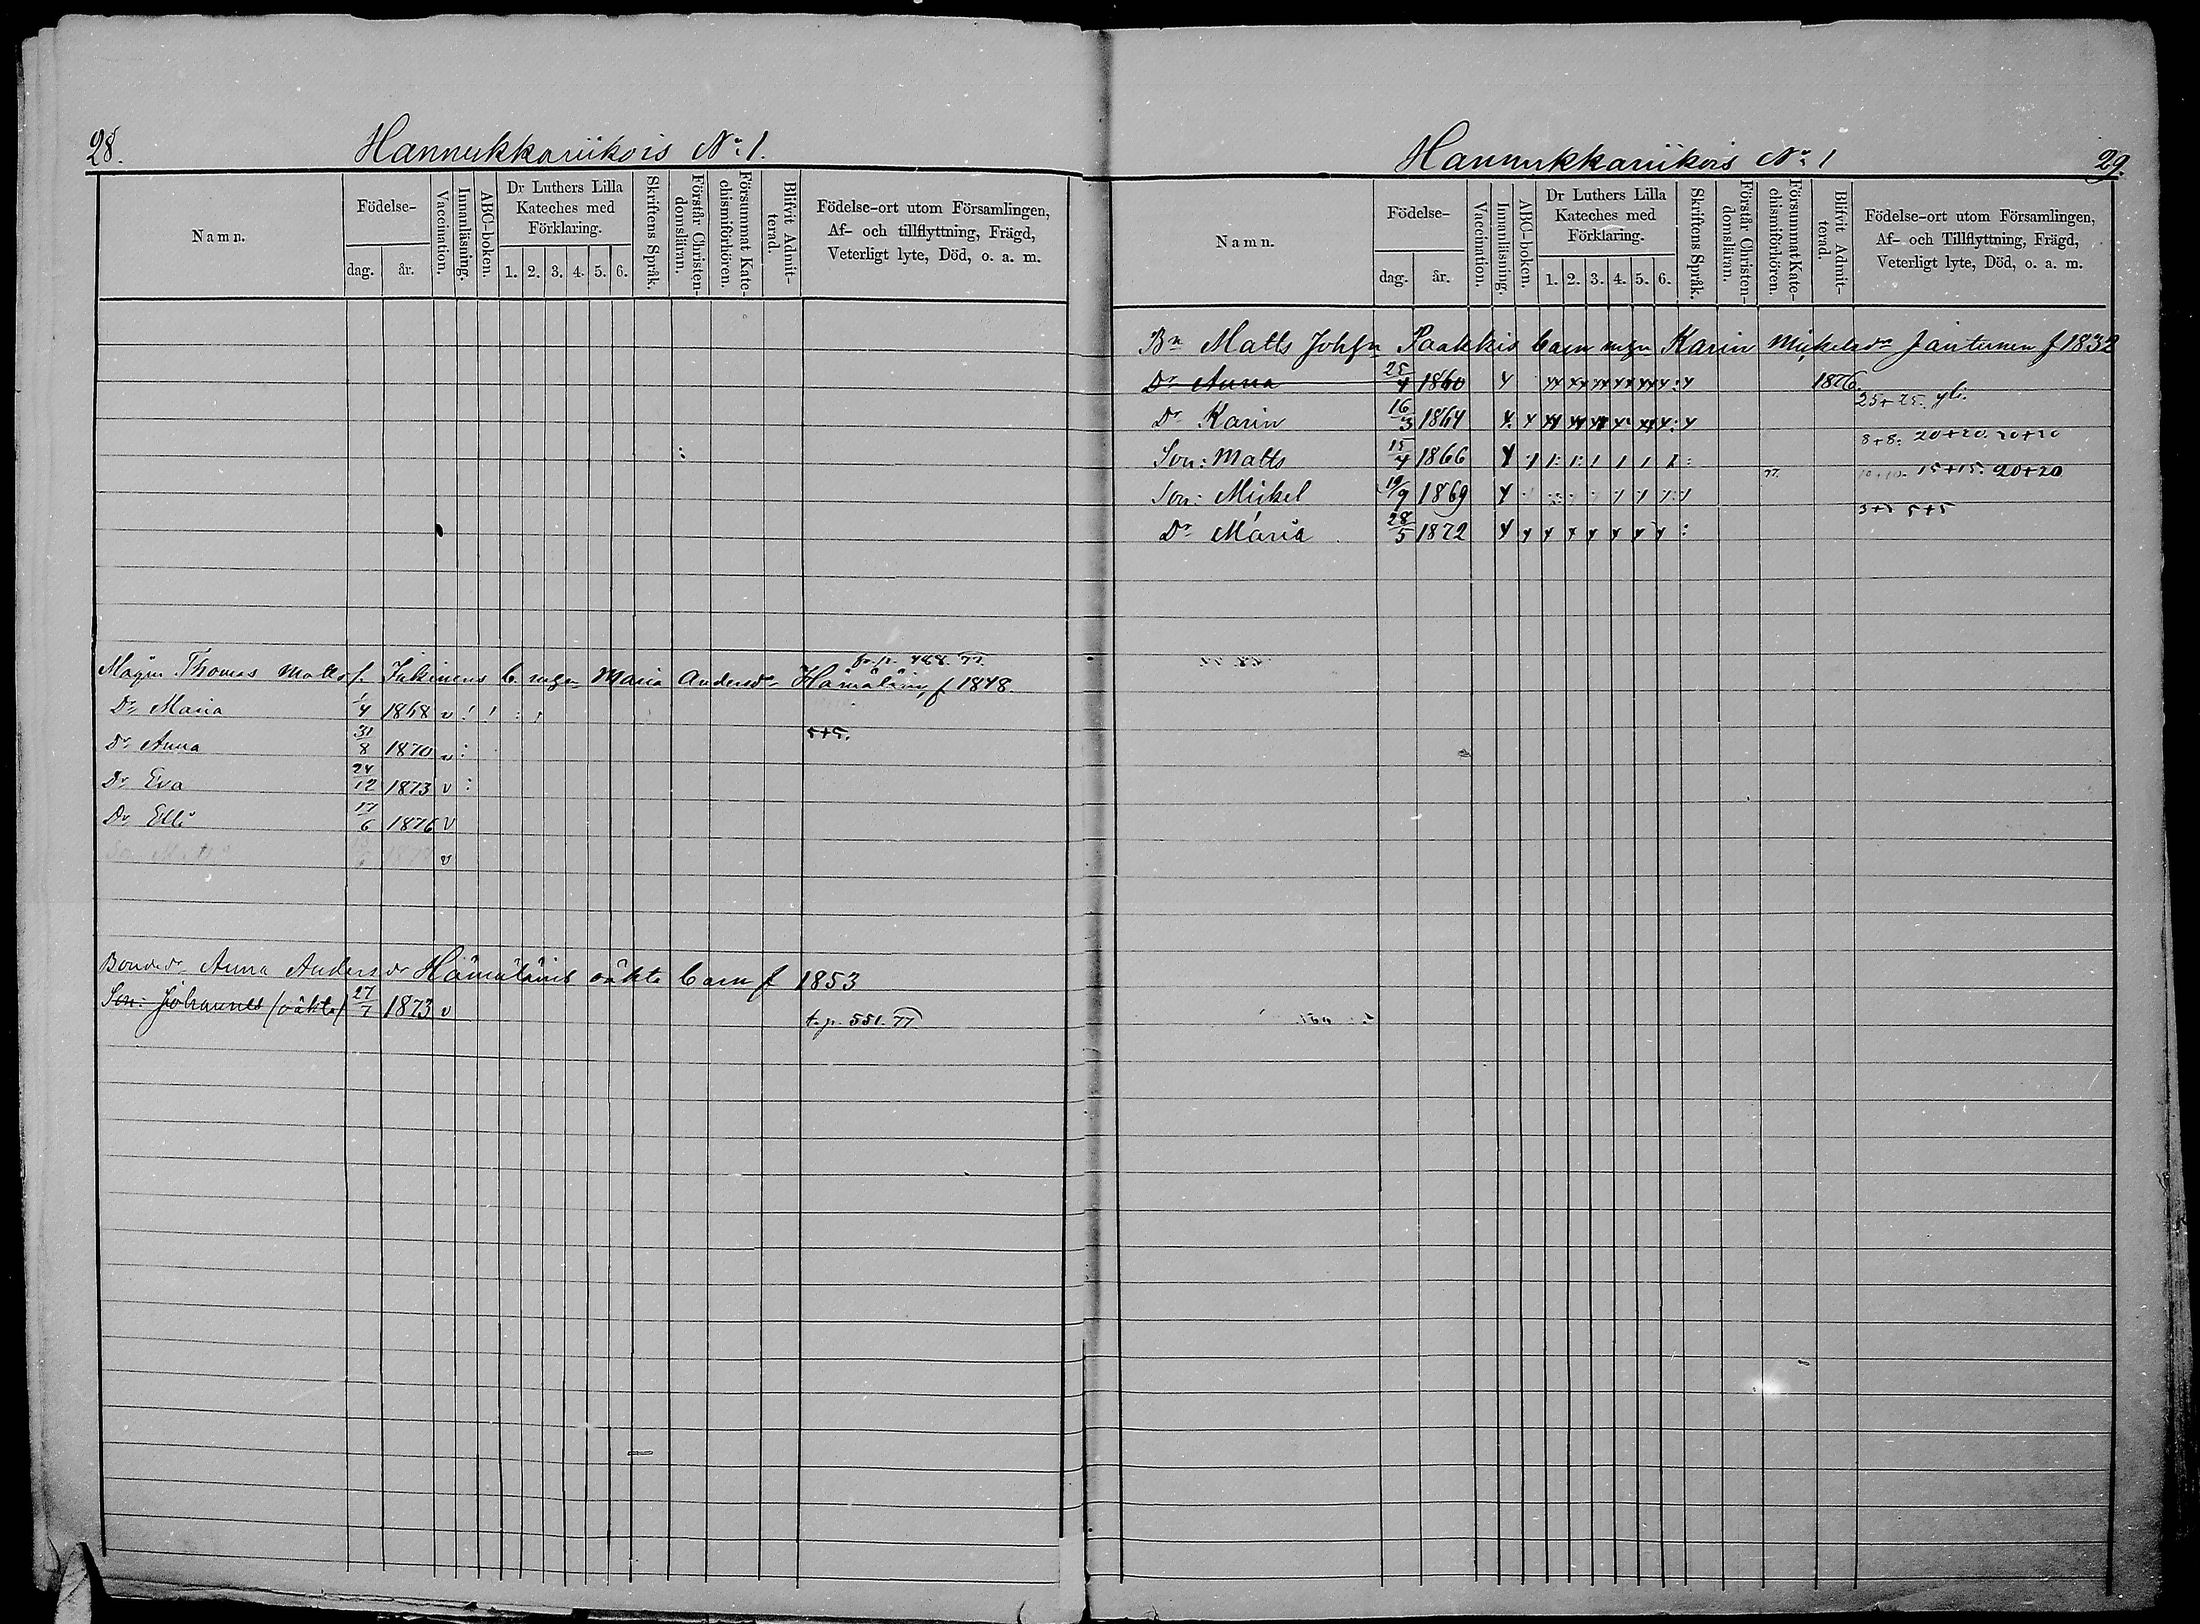 28.
Hannukkariikois No: 1.
Namn.
Födelse-
dag.
år.
Vaccination.
Innanläsning.
ABC-boken.
Dr Luthers Lilla
Kateches med
Förklaring.
1. 2. 3. 4. 5. 6.
Skriftens Språk.
Förstår Christen-
domsläran.
Försummat Kate-
chismiförhören.
Blifvit Admit-
terad.
Födelse-ort utom Församlingen,
Af- och tillflyttning, Frägd,
Veterligt lyte, Död, o. a. m.
fr. p. 488. 77.
Thomas Matts f. Inkinens b. m Maria Andersdr Hämäläin, f 1848.
Dr Maria 1/4 1868 v
Dr Anna 31/8 1870 v
5+5.
Dr Eva 24/12 1873 v
Dr Elli 17/6 1876 v
v
Bondedr Anna Andersdr Hämäläins oäkta barn f 1853
Son: Johannes (oäkta) 27/7 1873 v
t. p. 551. 77
Hannukkariikois No: 1
29.
Namn.
Födelse-
dag.
år.
Vaccination.
Innanläsning.
ABC-boken.
Dr Luthers Lilla
Kateches med
Förklaring.
1. 2. 3. 4. 5. 6.
Skriftens Språk.
Förstår Christen-
domsläran.
Försummat Kate-
chismiförhören.
Blifvit Admit-
terad.
Födelse-ort utom Församlingen,
Af- och Tillflyttning, Frägd,
Veterligt lyte, Död, o. a. m.
Bn Matts Johsn Paakkis barn m Karin Mickelsdr f 1832
Dr Anna 25/4 1860 1876.
25+25.
Dr Karin 16/3 1864
8+8: 20+20. 20+20
Son: Matts 15/4 1866
77. 10+10. 15+15. 20+20
Son: Mickel 19/9 1869
5+5
Dr Maria 28/5 1872